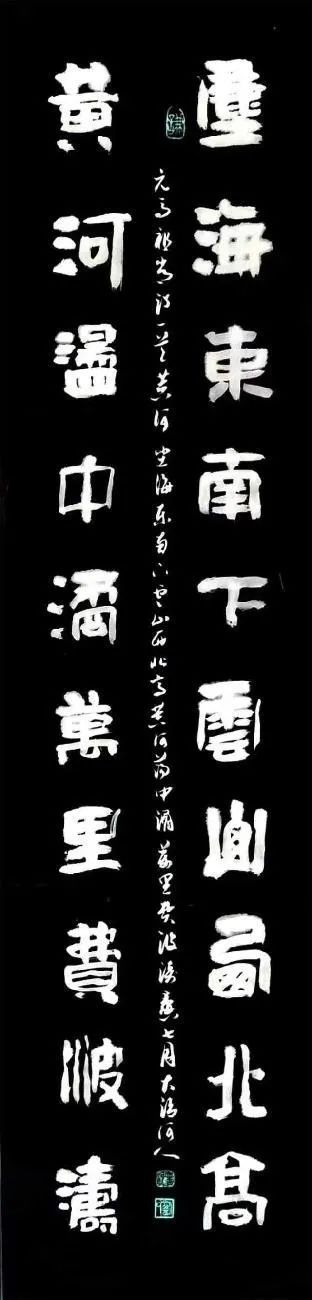 塵海東南下雲山西北高
元马祖常诗一首黄河尘海东南下云山西北高黄河荡中潏萬里费波涛七月大清河人
黄河盪中潏萬里費波濤